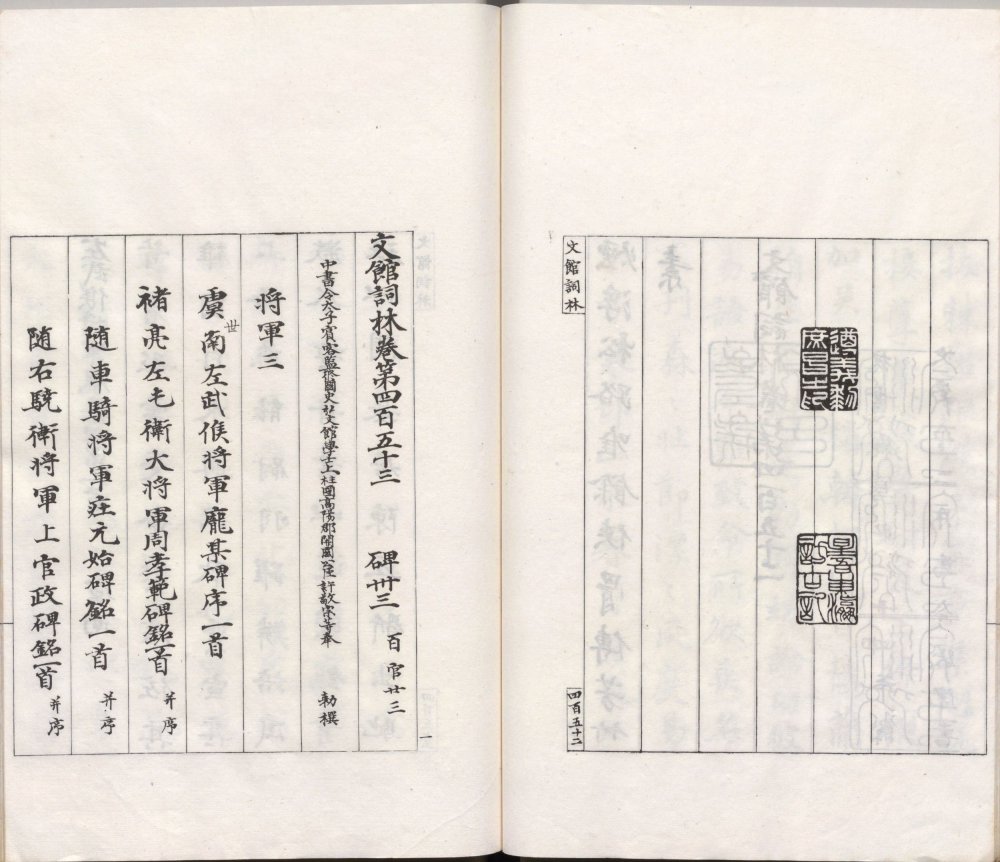 文館詞林
四百五十二
遵義黎庶昌印
星吾東瀛訪古記
文館詞林卷第四百五十三 碑卅三 百官廿三
中書令太子賓客監脩國史弘文館學士上柱國高陽郡開國公臣許敬宗等奉 勅撰
将軍三
虞世南左武候将軍龐某碑序一首
褚亮左屯衛大将軍周孝範碑銘一首 并序
随車騎将軍莊元始碑銘一首 并序
随右驍衛将軍上官政碑銘一首 并序
一